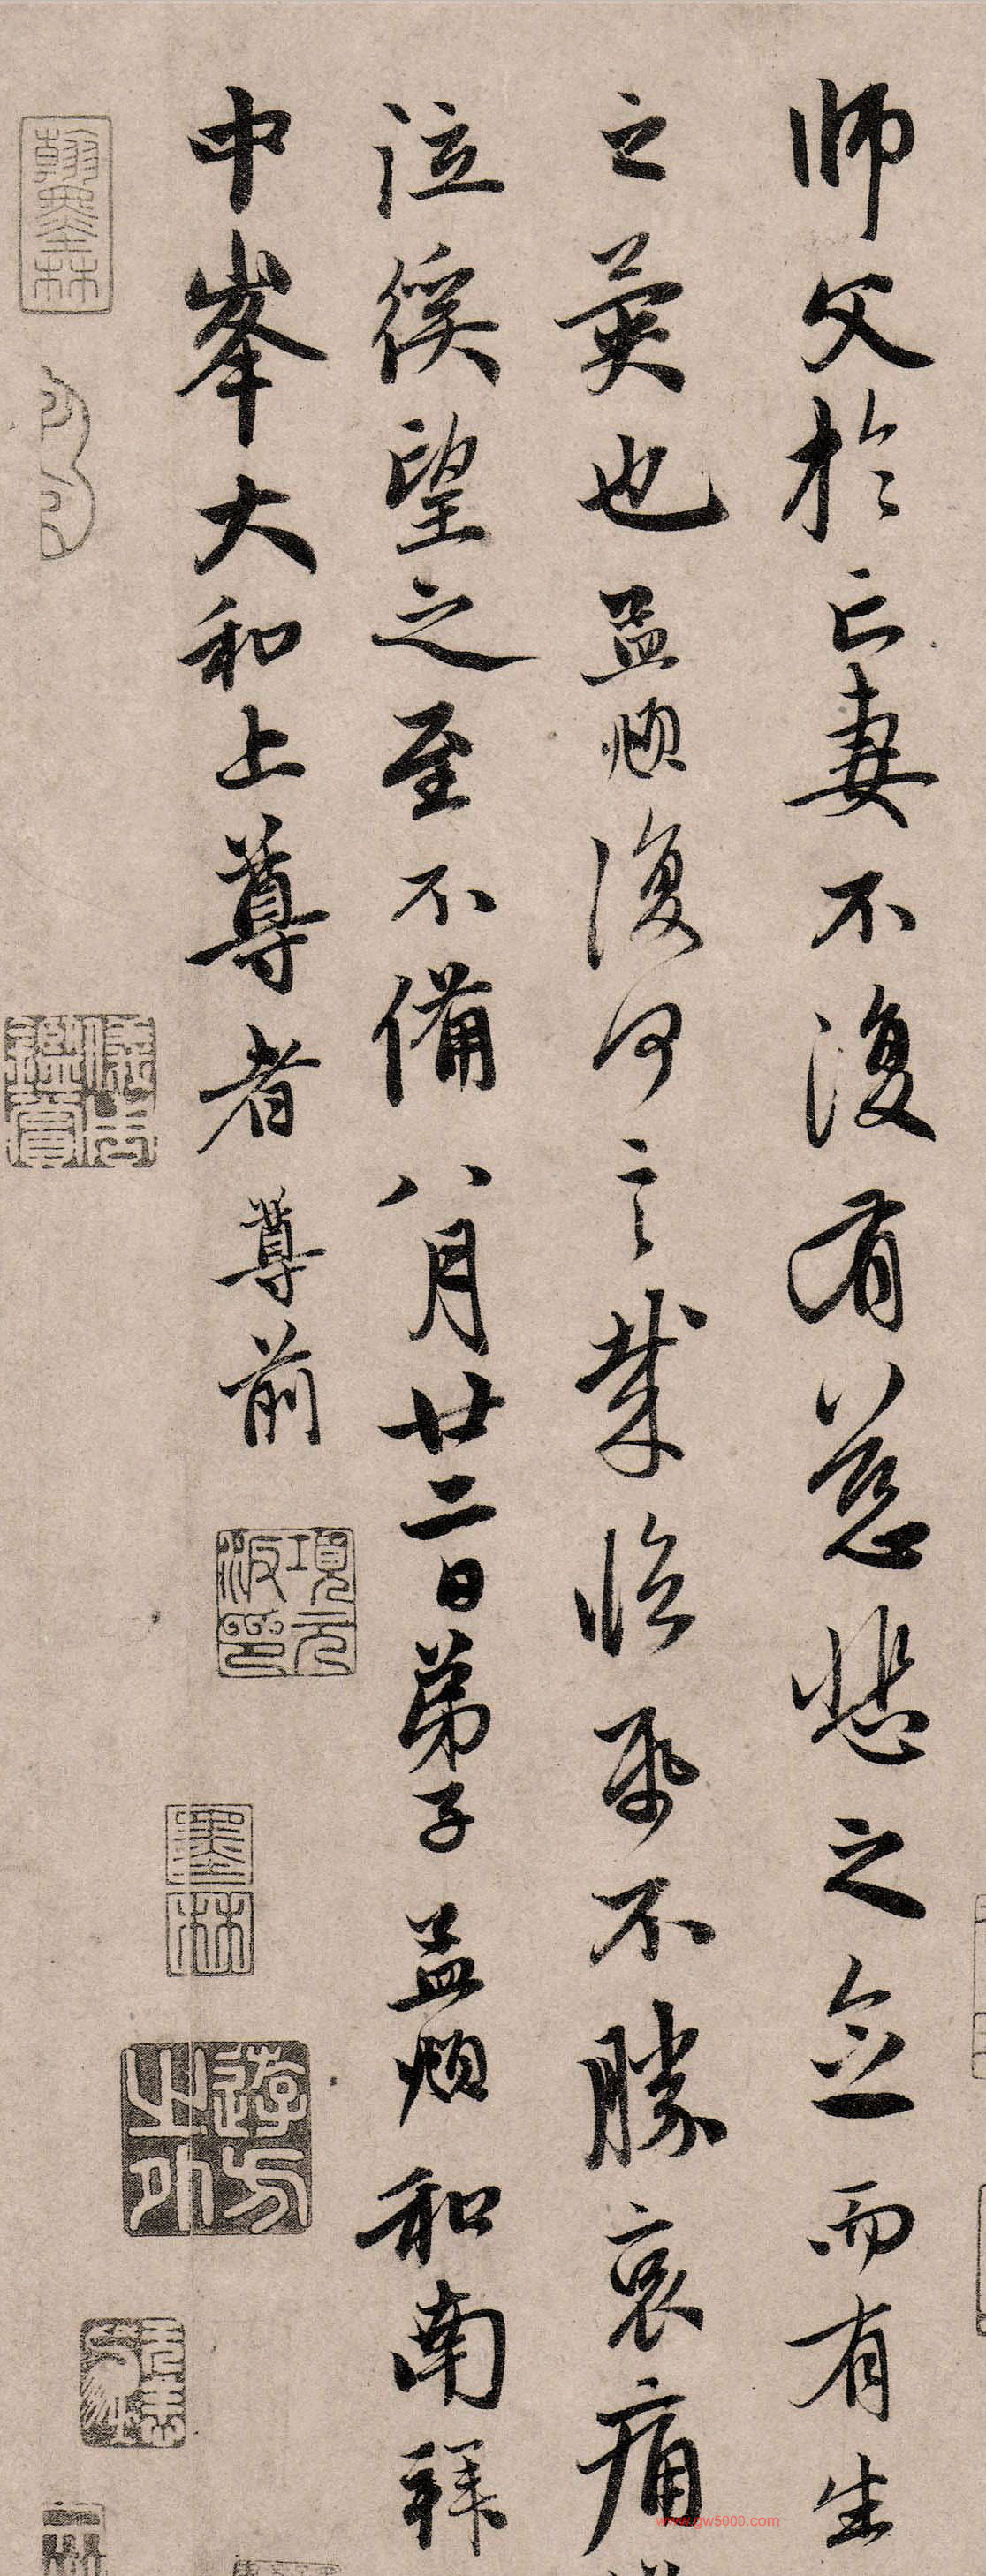 師父於亡妻不復有慈悲之念而有生
之異也孟頫復何言哉臨紙不勝哀痛
泣徯望之至不備八月廿二日弟子孟頫和南拜
中峯大和上尊者尊前
項元汴印
墨林
遊方之外
翰墨林
www.gw5000.com